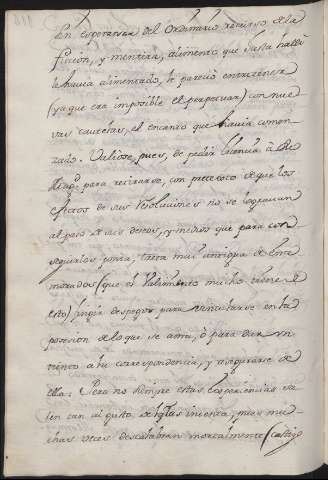 en esperanza del ordinario recurso de la
ficcion, y mentira, alimento que hasta halli
le havia alimentado, le pareció entretener
(ya que era imposible el perpetuar) con nue
vas cautelas, el encanto que havia comen
zado. Valiose, pues, de pedir licencia à
para retirarse, con pretexto de que los
efectos de sus resoluciones no se lograuan
al paso de sus deseos, y medios que para con
seguirlos ponia, treta mui antigua de Ena
morados (que el Valimento mucho tiene de
esto) fingir despegos para vincularse en la
posesion de lo que se ama, ò para dar un
tiento a la correspondencia, y asegurarse de
ella: Pero no siempre estas experiencias sa
len tan al gusto de quien las inventa, pues mu
chas veces descalabran mortalmente (castigo